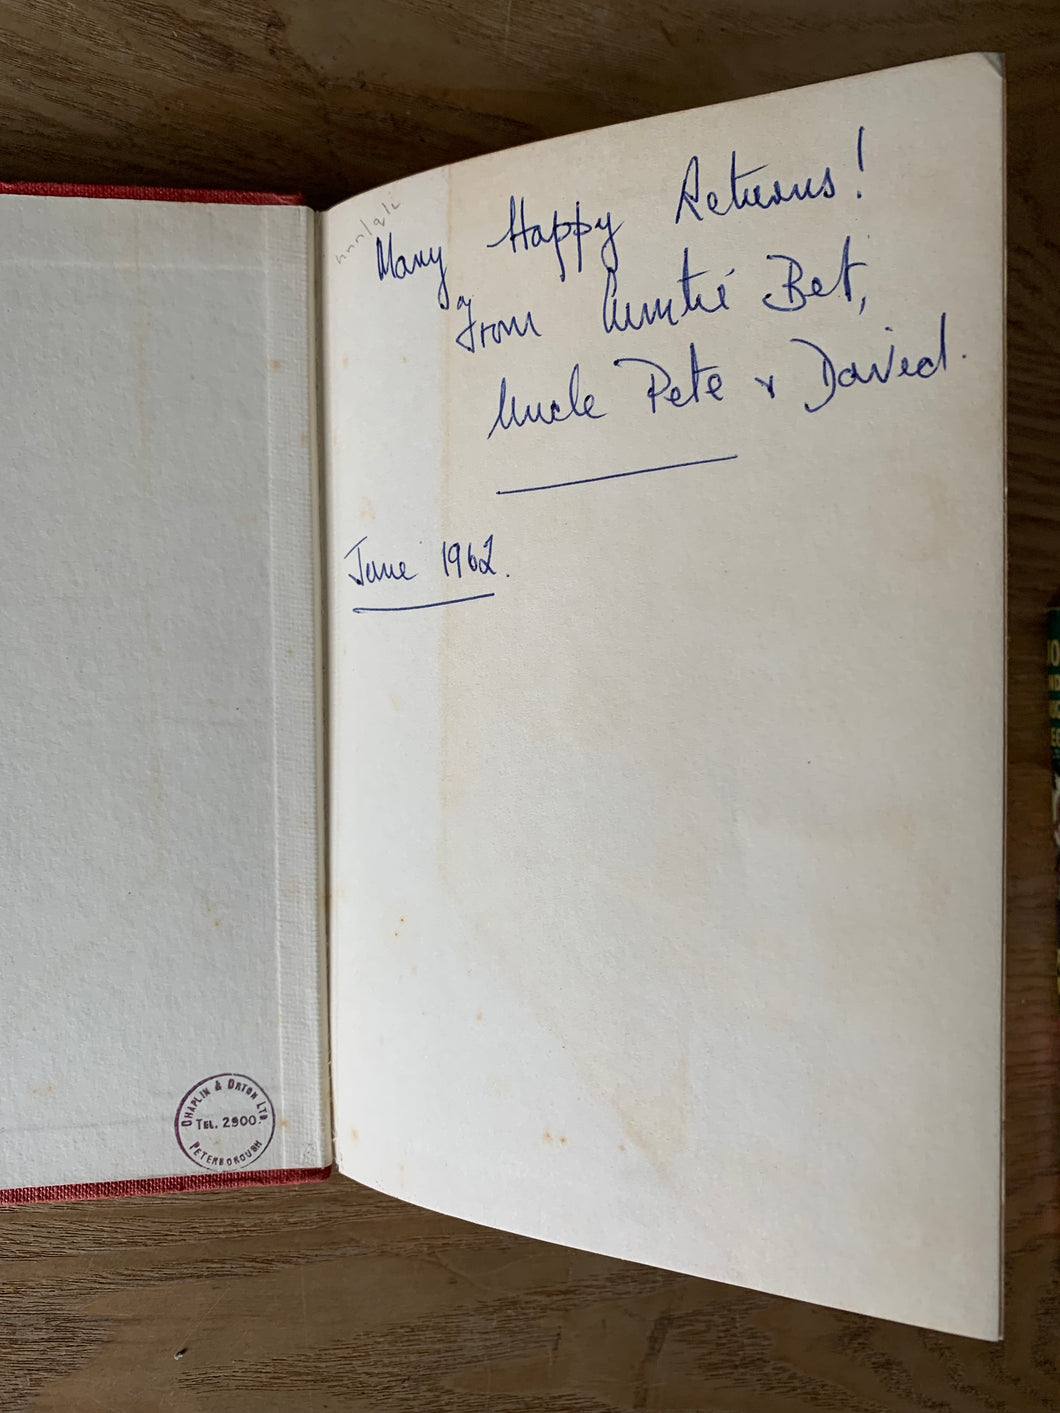 Many Happy Returns!
From Auntie Bet,
Uncle Pete & David.
June 1962.
CHAPLIN & ORTON LTD.
TEL. 2900.
PETERBOROUGH